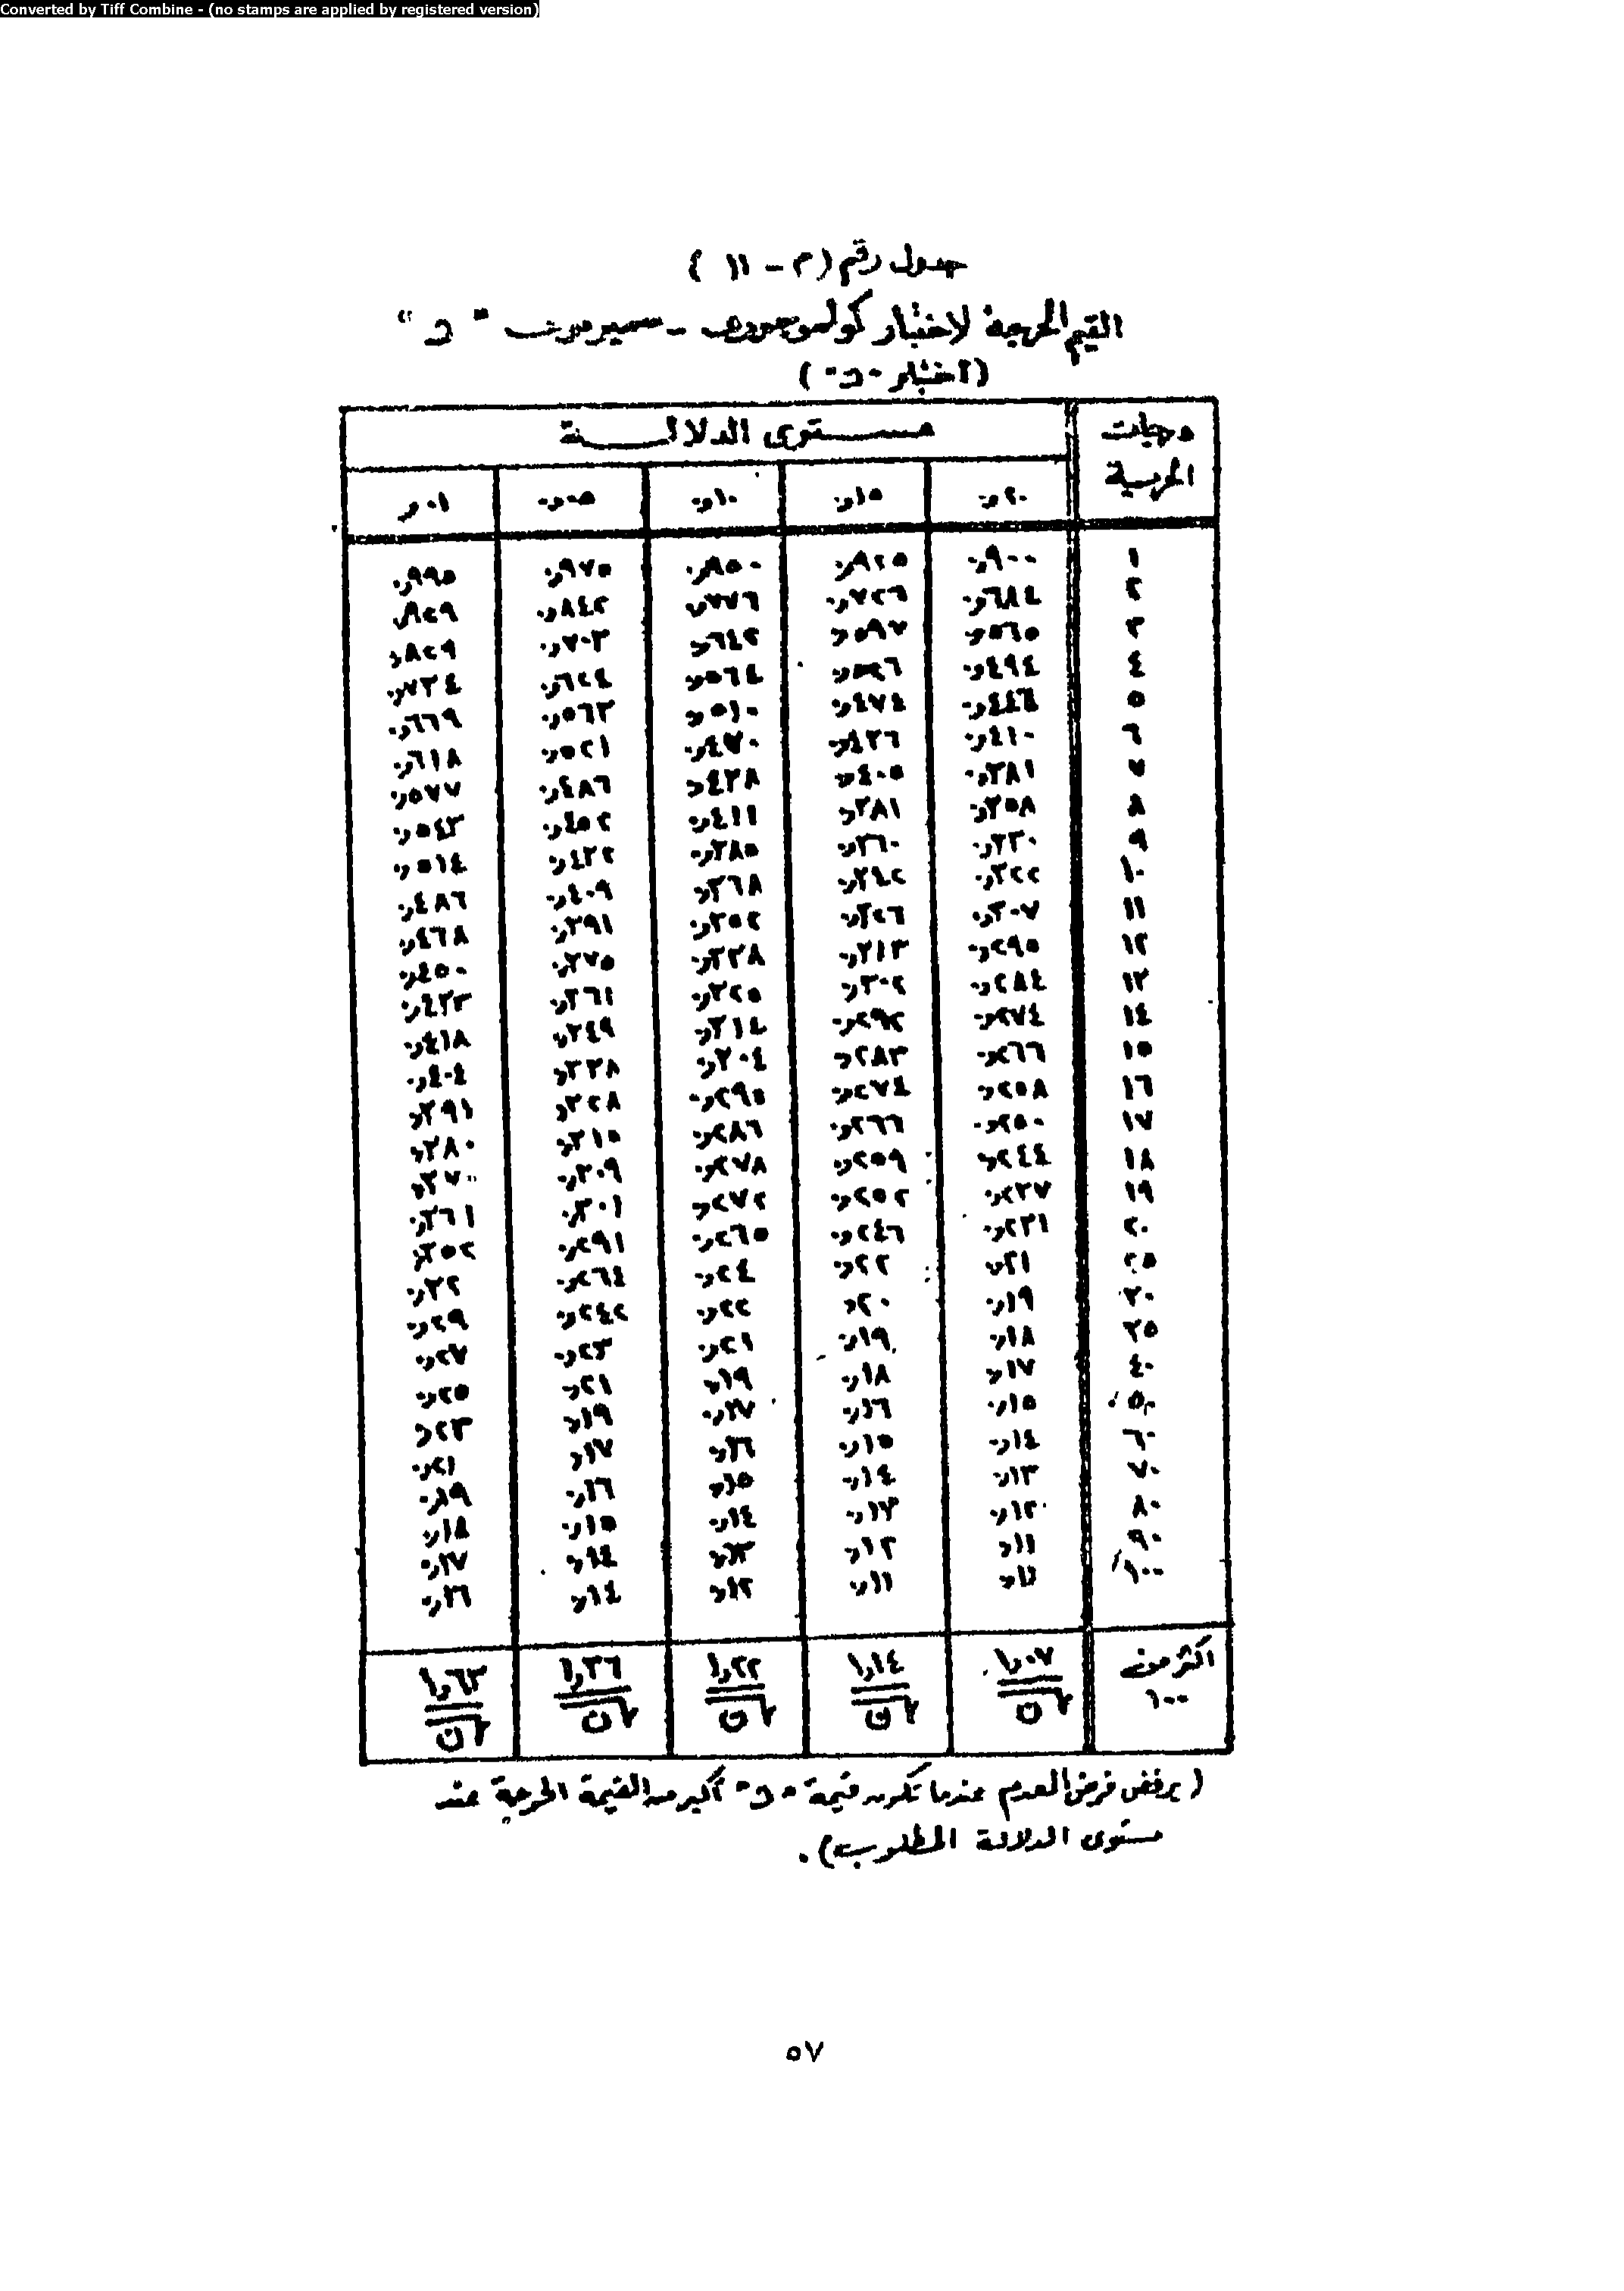 Converted by Tiff Combine - (no stamps are applied by registered version)
جدول رقم (م - ١١ )
القيم الحرجة لاختبار كولموجروف - سميرنوف " د "
(اختبار "د")
درجات الحرية مستوى الدلالة
٠,٢٠ ٠,١٥ ٠,١٠ ٠,٠٥ ٠,٠١
١ ٠,٩٠٠ ٠,٩٢٥ ٠,٩٥٠ ٠,٩٧٥ ٠,٩٩٥
٢ ٠,٦٨٤ ٠,٧٢٦ ٠,٧٧٦ ٠,٨٤٢ ٠,٩٢٩
٣ ٠,٥٦٥ ٠,٥٩٧ ٠,٦٤٢ ٠,٧٠٣ ٠,٨٢٩
٤ ٠,٤٩٤ ٠,٥٢٦ ٠,٥٦٤ ٠,٦٢٤ ٠,٧٣٤
٥ ٠,٤٤٦ ٠,٤٧٤ ٠,٥١٠ ٠,٥٦٣ ٠,٦٦٩
٦ ٠,٤١٠ ٠,٤٣٦ ٠,٤٧٠ ٠,٥٢١ ٠,٦١٨
٧ ٠,٣٨١ ٠,٤٠٥ ٠,٤٣٨ ٠,٤٨٦ ٠,٥٧٧
٨ ٠,٣٥٨ ٠,٣٨١ ٠,٤١١ ٠,٤٥٢ ٠,٥٤٣
٩ ٠,٣٣٠ ٠,٣٦٠ ٠,٣٨٥ ٠,٤٣٢ ٠,٥١٤
١٠ ٠,٣٢٢ ٠,٣٤٢ ٠,٣٦٨ ٠,٤٠٩ ٠,٤٨٦
١١ ٠,٣٠٧ ٠,٣٢٦ ٠,٣٥٢ ٠,٣٩١ ٠,٤٦٨
١٢ ٠,٢٩٥ ٠,٣١٣ ٠,٣٣٨ ٠,٣٧٥ ٠,٤٥٠
١٣ ٠,٢٨٤ ٠,٣٠٢ ٠,٣٢٥ ٠,٣٦١ ٠,٤٣٣
١٤ ٠,٢٧٤ ٠,٢٩٢ ٠,٣١٤ ٠,٣٤٩ ٠,٤١٨
١٥ ٠,٢٦٦ ٠,٢٨٣ ٠,٣٠٤ ٠,٣٣٨ ٠,٤٠٤
١٦ ٠,٢٥٨ ٠,٢٧٤ ٠,٢٩٥ ٠,٣٢٨ ٠,٣٩١
١٧ ٠,٢٥٠ ٠,٢٦٦ ٠,٢٨٦ ٠,٣١٥ ٠,٣٨٠
١٨ ٠,٢٤٤ ٠,٢٥٩ ٠,٢٧٨ ٠,٣٠٩ ٠,٣٧٠
١٩ ٠,٢٣٧ ٠,٢٥٢ ٠,٢٧٢ ٠,٣٠١ ٠,٣٦١
٢٠ ٠,٢٣١ ٠,٢٤٦ ٠,٢٦٥ ٠,٢٩١ ٠,٣٥٢
٢٥ ٠,٢١ ٠,٢٢ ٠,٢٤ ٠,٢٦٤ ٠,٣٢
٣٠ ٠,١٩ ٠,٢٠ ٠,٢٢ ٠,٢٤٢ ٠,٢٩
٣٥ ٠,١٨ ٠,١٩ ٠,٢١ ٠,٢٣ ٠,٢٧
٤٠ ٠,١٧ ٠,١٨ ٠,١٩ ٠,٢١ ٠,٢٥
٥٠ ٠,١٥ ٠,١٦ ٠,١٧ ٠,١٩ ٠,٢٣
٦٠ ٠,١٤ ٠,١٥ ٠,١٦ ٠,١٧ ٠,٢١
٧٠ ٠,١٣ ٠,١٤ ٠,١٥ ٠,١٦ ٠,١٩
٨٠ ٠,١٢ ٠,١٣ ٠,١٤ ٠,١٥ ٠,١٨
٩٠ ٠,١١ ٠,١٢ ٠,١٣ ٠,١٤ ٠,١٧
١٠٠ ٠,١١ ٠,١١ ٠,١٢ ٠,١٤ ٠,١٦
أكثر من ١,٠٧ ١,١٤ ١,٢٢ ١,٣٦ ١,٦٣
١٠٠ √ن √ن √ن √ن √ن
( يرفض فرض العدم عندما تكون قيمة "د" أكبر من القيمة الحرجة عند
مستوى الدلالة المطلوب) .
٥٧